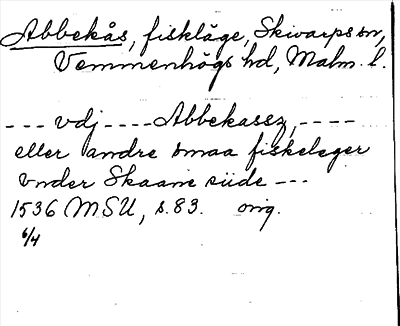 Abbekås, fiskläge, Skivarps sn,
Vemmenhögs hd, Malm. l.
--- vdj ---- Abbekassz, ----
eller andre smaa fiskeleger
vnder Skaane siide ---
1536 MSU, s. 83. orig.
6/4